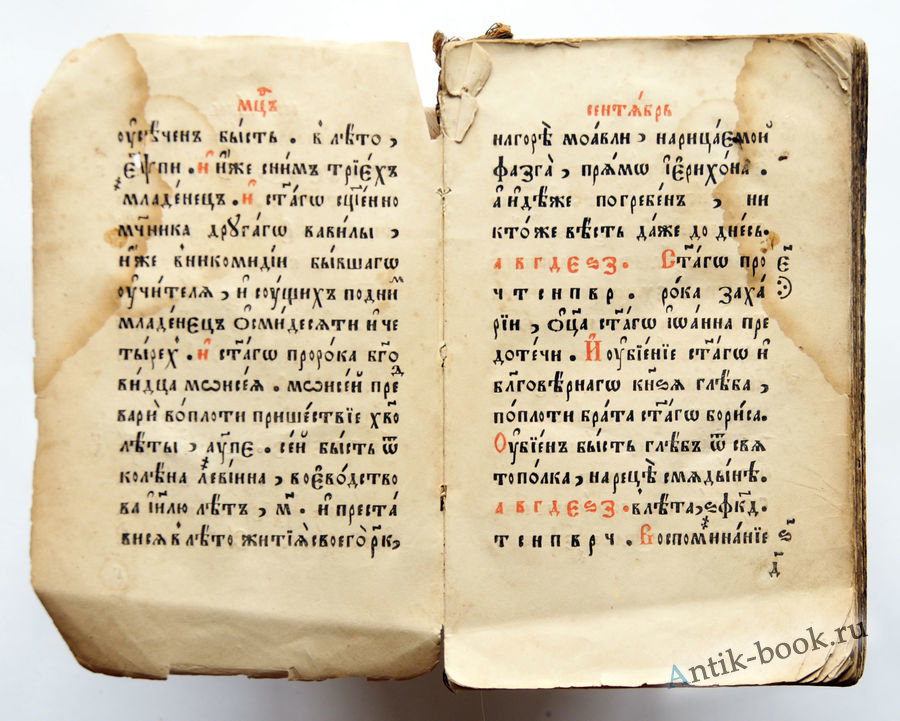 мц҃ъ
ѹ҆сѣ́ченъ бы́сть . в лѣ́то ,
є҃ѱпи . и҆ и҆́же сни́мъ трїе́хъ
младе́нецъ . и҆ ст҃а́гѡ сщ҃е́нно
мч҃ника дрꙋга́гѡ вави́лы ,
и҆́же в никомиді́и бы́вшагѡ
ѹ҆чи́телѧ , и҆ сꙋ́щихъ подни́м
младе́нецъ ѻ҆смидесѧти и҆ че
ты́рех̾ . и҆ ст҃а́гѡ проро́ка бг҃о
ви́дца мѡѡисе́ѧ . мѡѡисе́й пре
варѝ во́плоти прише́ствїе хв҃о
лѣ́ты , аѱ҃пє . се́й бы́сть ѿ
колѣ́на леві́инна , воево́дство
ва і҆и҃лю лѣ́тъ , м҃ . и҆ преста́
висѧ в лѣ́то житїѧ̀ своего̀ р҃к,
сентѧ́брь
на горѣ̀ моа́вли , нарица́емой
фазга̀ , прѧ́мо і҆ерихо́на .
а҆ и҆дѣ́же погребе́нъ , ни
кто́же вѣ́сть да́же до дне́сь.
а в г д е ѕ з . Ст҃а́гѡ про є҃
ч т с н п в р . ро́ка заха́
рїи , ѻ҆ц҃а ст҃а́гѡ і҆ѡа́нна пре
доте́чи . И҆ ѹ҆бїе́нїе ст҃а́гѡ и҆
бл҃говѣ́рнагѡ кн҃ѕѧ глѣ́ба ,
по́плоти бра́та ст҃а́гѡ бори́са.
Ѹ҆бїе́нъ бы́сть глѣ́бъ ѿ свѧ
топо́лка , нарецѣ̀ смѧды́нѣ.
а в г д е ѕ з . в лѣ́та , ѕфк҃д.
т с н п в р ч . Воспомина́нїе ѕ҃
д҃
Antik-book.ru